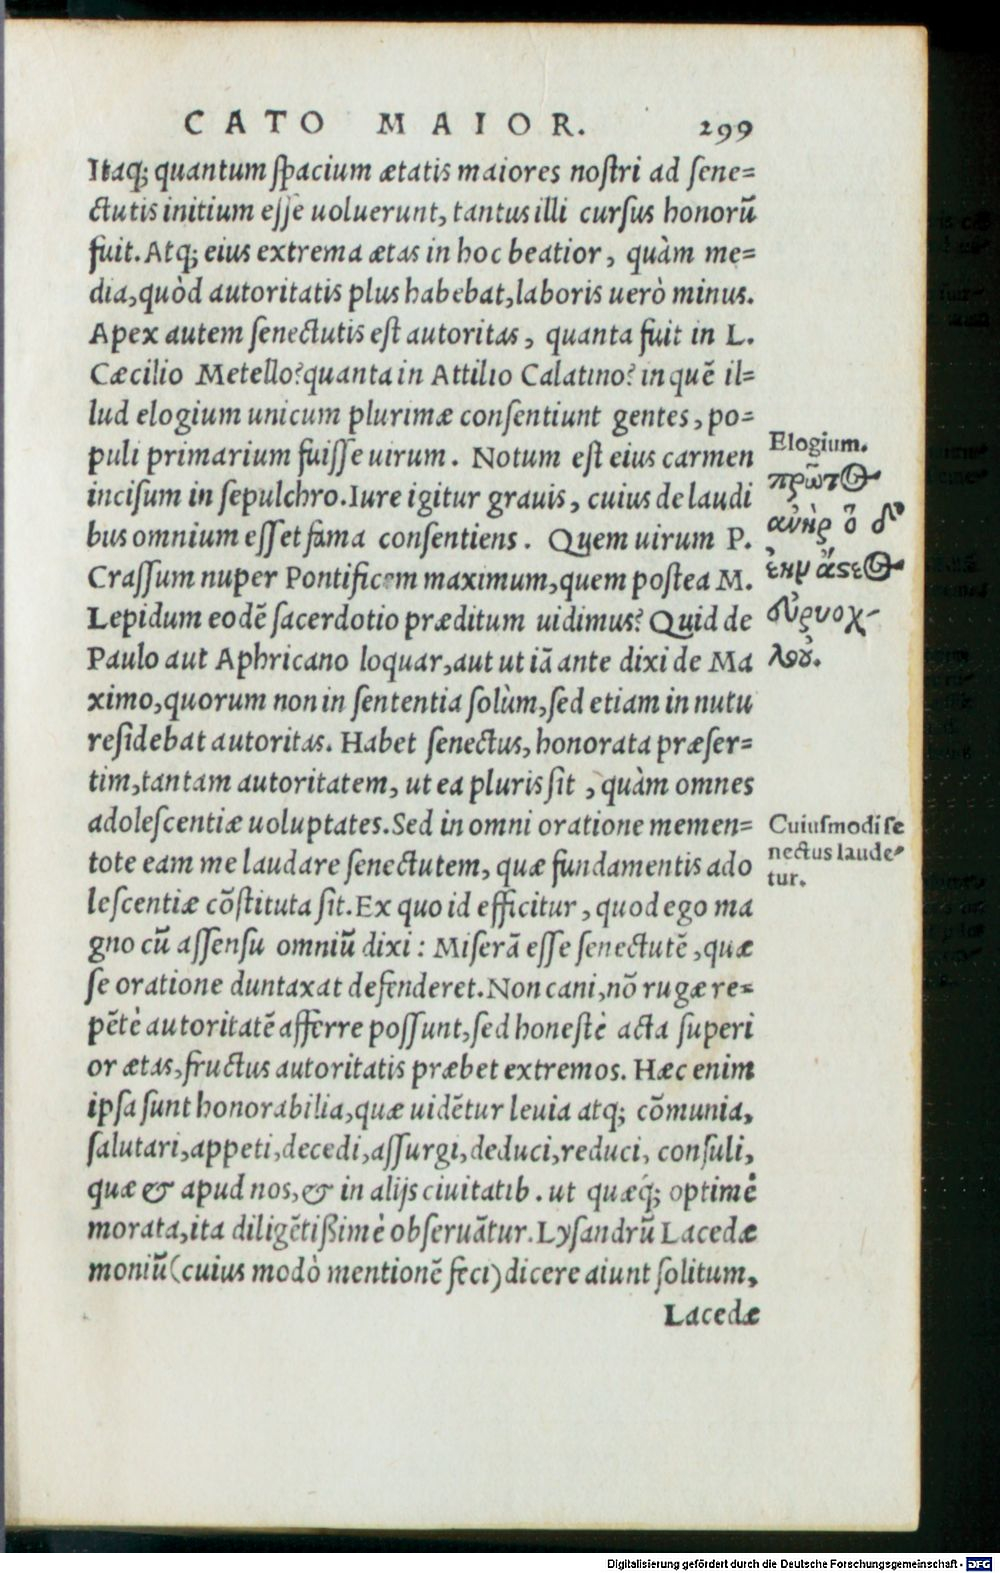 CATO MAIOR. 299
Itaq; quantum spacium ætatis maiores nostri ad sene=
ctutis initium esse uoluerunt, tantus illi cursus honorũ
fuit. Atq; eius extrema ætas in hoc beatior, quàm me=
dia, quòd autoritatis plus habebat, laboris uerò minus.
Apex autem senectutis est autoritas, quanta fuit in L.
Cæcilio Metello? quanta in Attilio Calatino? in quẽ il=
lud elogium unicum plurimæ consentiunt gentes, po=
puli primarium fuisse uirum. Notum est eius carmen
incisum in sepulchro. Iure igitur grauis, cuius de laudi
bus omnium esset fama consentiens. Quem uirum P.
Crassum nuper Pontificem maximum, quem postea M.
Lepidum eodẽ sacerdotio præditum uidimus? Quid de
Paulo aut Aphricano loquar, aut ut iã ante dixi de Ma
ximo, quorum non in sententia solùm, sed etiam in nutu
residebat autoritas. Habet senectus, honorata præser=
tim, tantam autoritatem, ut ea pluris sit, quàm omnes
adolescentiæ uoluptates. Sed in omni oratione memen=
tote eam me laudare senectutem, quæ fundamentis ado
lescentiæ cõstituta sit. Ex quo id efficitur, quod ego ma
gno cũ assensu omniũ dixi: Miserã esse senectutẽ, quæ
se oratione duntaxat defenderet. Non cani, nõ rugæ re=
pẽtè autoritatẽ afferre possunt, sed honestè acta superi
or ætas, fructus autoritatis præbet extremos. Hæc enim
ipsa sunt honorabilia, quæ uidẽtur leuia atq; cõmunia,
salutari, appeti, decedi, assurgi, deduci, reduci, consuli,
quæ & apud nos, & in alijs ciuitatib. ut quæq; optimè
morata, ita diligẽtißimè obseruãtur. Lysandrũ Lacedæ
moniũ (cuius modò mentionẽ feci) dicere aiunt solitum,
Lacedæ
Elogium.
πρῶτος
ἀνὴρ ὁ δ'
ἐκ
λου.
Cuiusmodi se
nectus laude
tur.
Digitalisierung gefördert durch die Deutsche Forschungsgemeinschaft - DFG